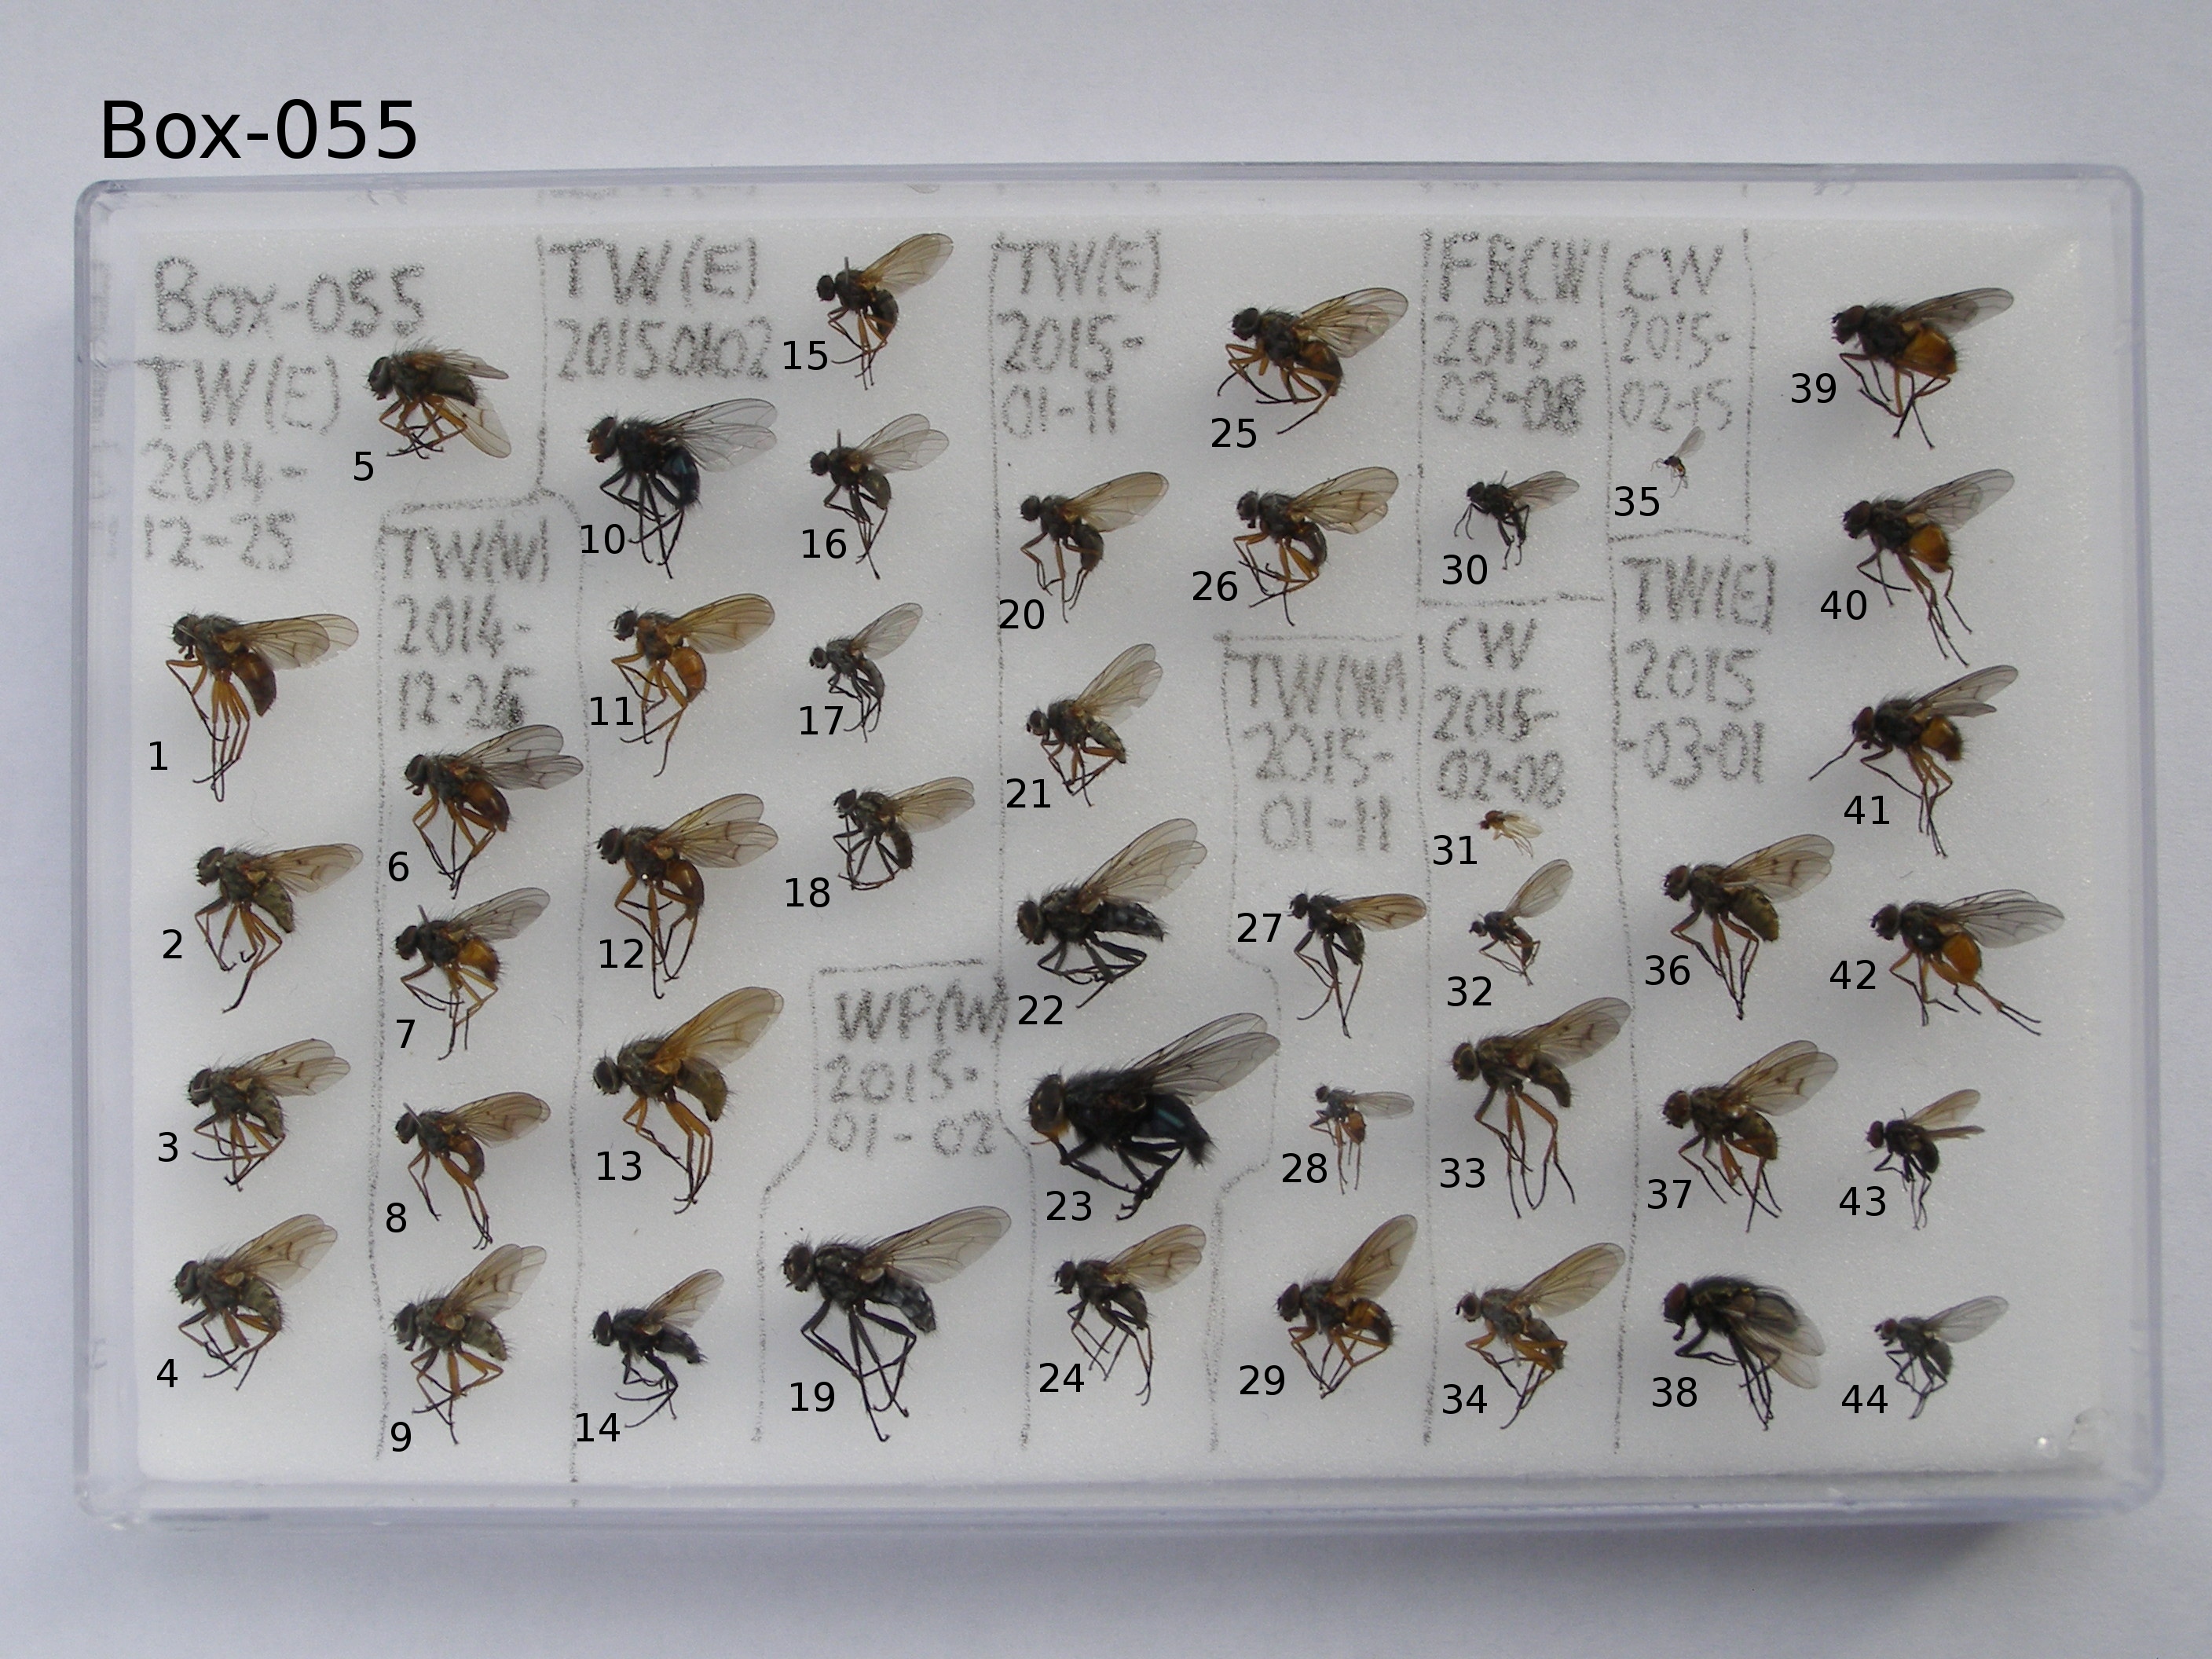 Box-055
Box-055
TW(E)
2014-
12-25
5
1
2
3
4
TW(W)
2014-
12-26
6
7
8
9
TW(E)
20150102
10
11
12
13
14
15
16
17
18
WP(W)
2015-
01-02
19
TW(E)
2015-
01-11
20
21
22
23
24
25
26
TW(W)
2015-
01-11
27
28
29
FBCW
2015-
02-08
30
CW
2015-
02-08
31
32
33
34
CW
2015-
02-15
35
TW(E)
2015
-03-01
36
37
38
39
40
41
42
43
44